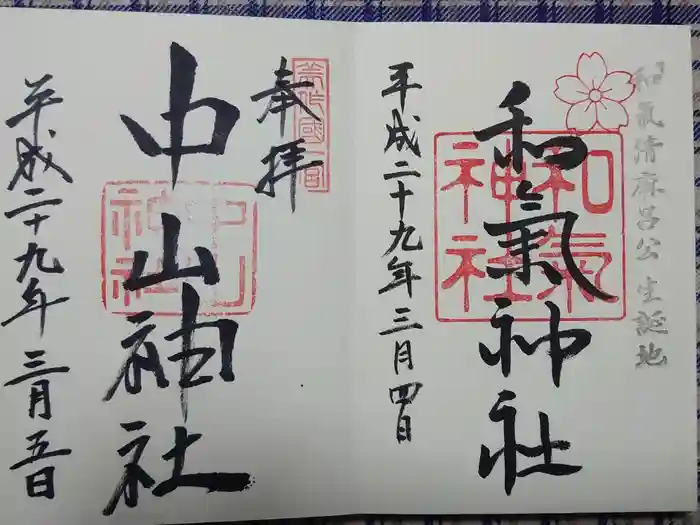 和氣清麻呂公生誕地
和氣神社
和氣神社
平成二十九年三月四日
美作國一宮
奉拝
中山神社
中山神社
平成二十九年三月五日